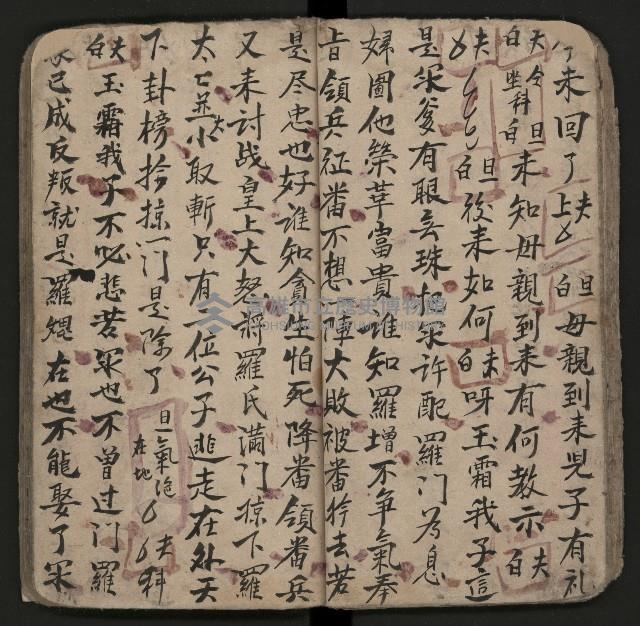 未回了 上夫 白旦 母親到来児子有礼
白夫 坐令 科 白旦 未知母親到来有何教示 白夫
夫 白旦 後来如何 白夫 呀玉霜我子這
是家爹有眼無珠 許配羅門為息
婦圖他榮華富貴誰知羅增不争氣奉
旨領兵征番不想 陣大敗被番 去若
是尽忠也好誰知貪生怕死降番領番兵
又来討战皇上大怒将羅氏滿門掠下羅
太 並 取斬只有二位公子逃走在外天
下卦榜拾掠一门是除了 旦氣绝在地 夫科
白夫 玉霜我子不必悲苦 也不曽过门羅
已成反叛就是羅焜在也不能娶了
高雄市立歷史博物館
KAOHSIUNG MUSEUM OF HISTORY